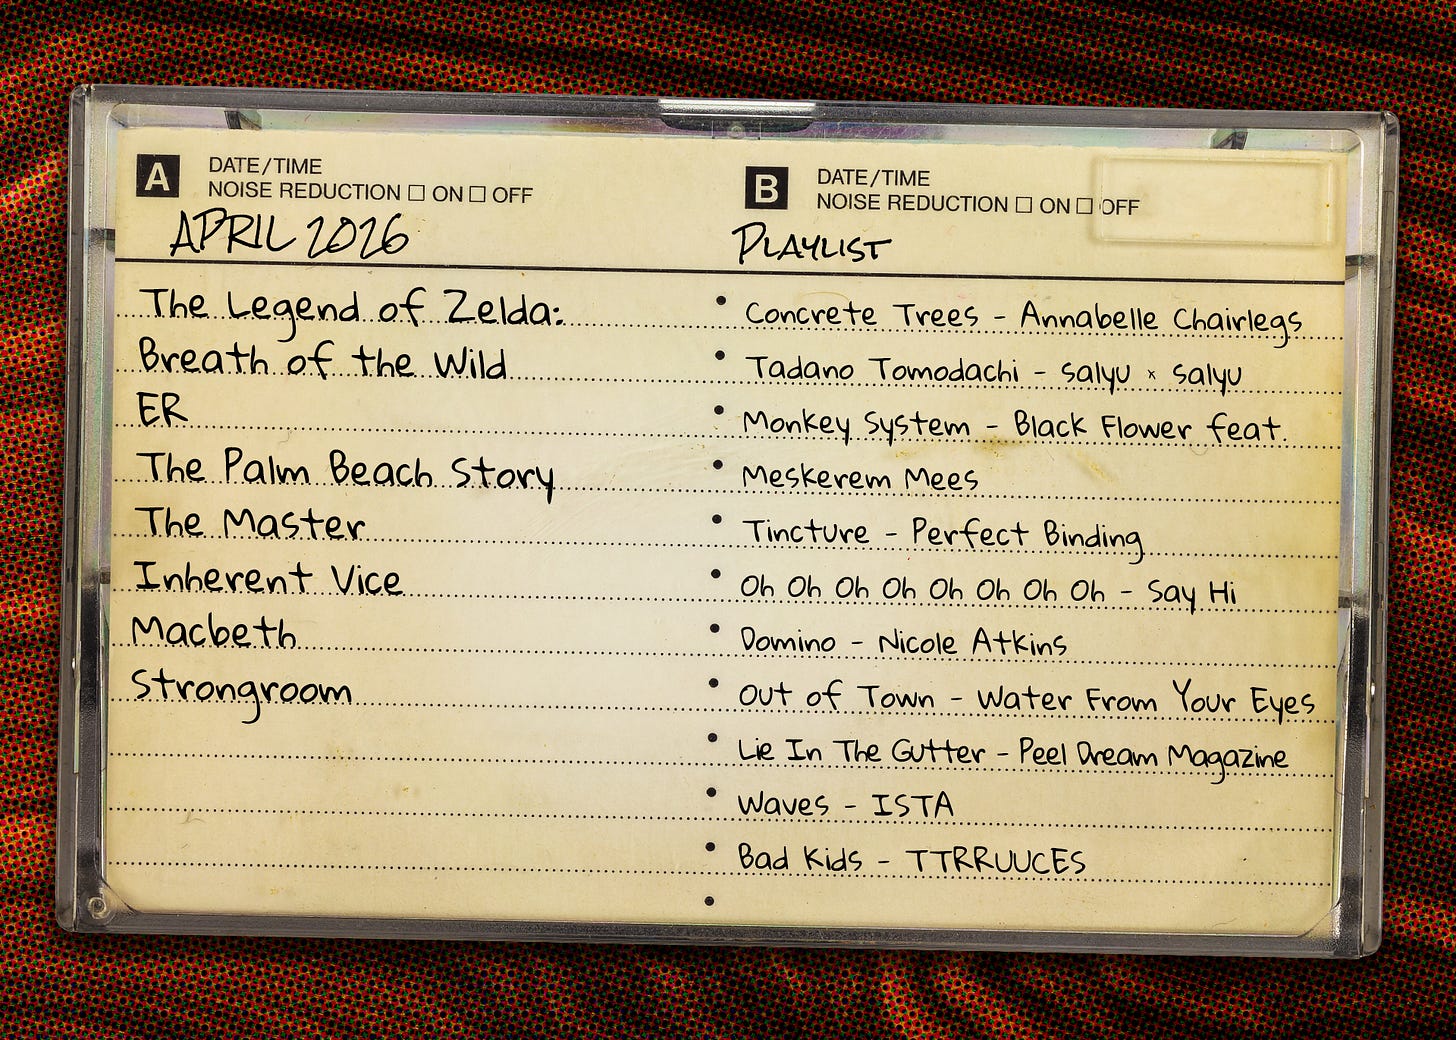 A
DATE/TIME
NOISE REDUCTION ☐ ON ☐ OFF
APRIL 2026
The Legend of Zelda:
Breath of the Wild
ER
The Palm Beach Story
The Master
Inherent Vice
Macbeth
Strongroom
B
DATE/TIME
NOISE REDUCTION ☐ ON ☐ OFF
PLAYLIST
Concrete Trees - Annabelle Chairlegs
Tadano Tomodachi - salyu x salyu
Monkey System - Black Flower feat.
Meskerem Mees
Tincture - Perfect Binding
Oh Oh Oh Oh Oh Oh Oh Oh - Say Hi
Domino - Nicole Atkins
Out of Town - Water From Your Eyes
Lie In The Gutter - Peel Dream Magazine
Waves - ISTA
Bad Kids - TTRRUUCES